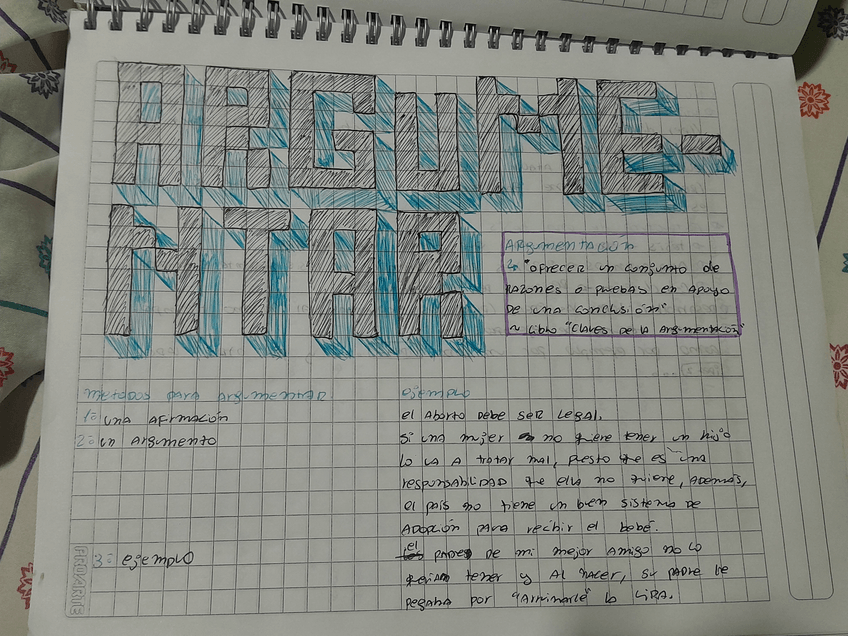 ARGUME-
NTAR
ARgumentación
↳ "ofrecer un conjunto de
razones o pruebas en apoyo
de una conclusión"
~ Libro "Claves de la Argumentación"
metodos para argumentar
1= una afirmación
2= un Argumento
3= ejemplo
ejemplo
el Aborto debe ser legal.
si una mujer no quiere tener un hijo
lo va a tratar mal, puesto que es una
responsabilidad que ella no quiere, además,
el país no tiene un buen sistema de
Adopción para recibir el bebé.
el padre de mi mejor amigo no lo
queria tener y al nacer, su padre le
pegaba por "arruinarle" la vida.
PROARTE